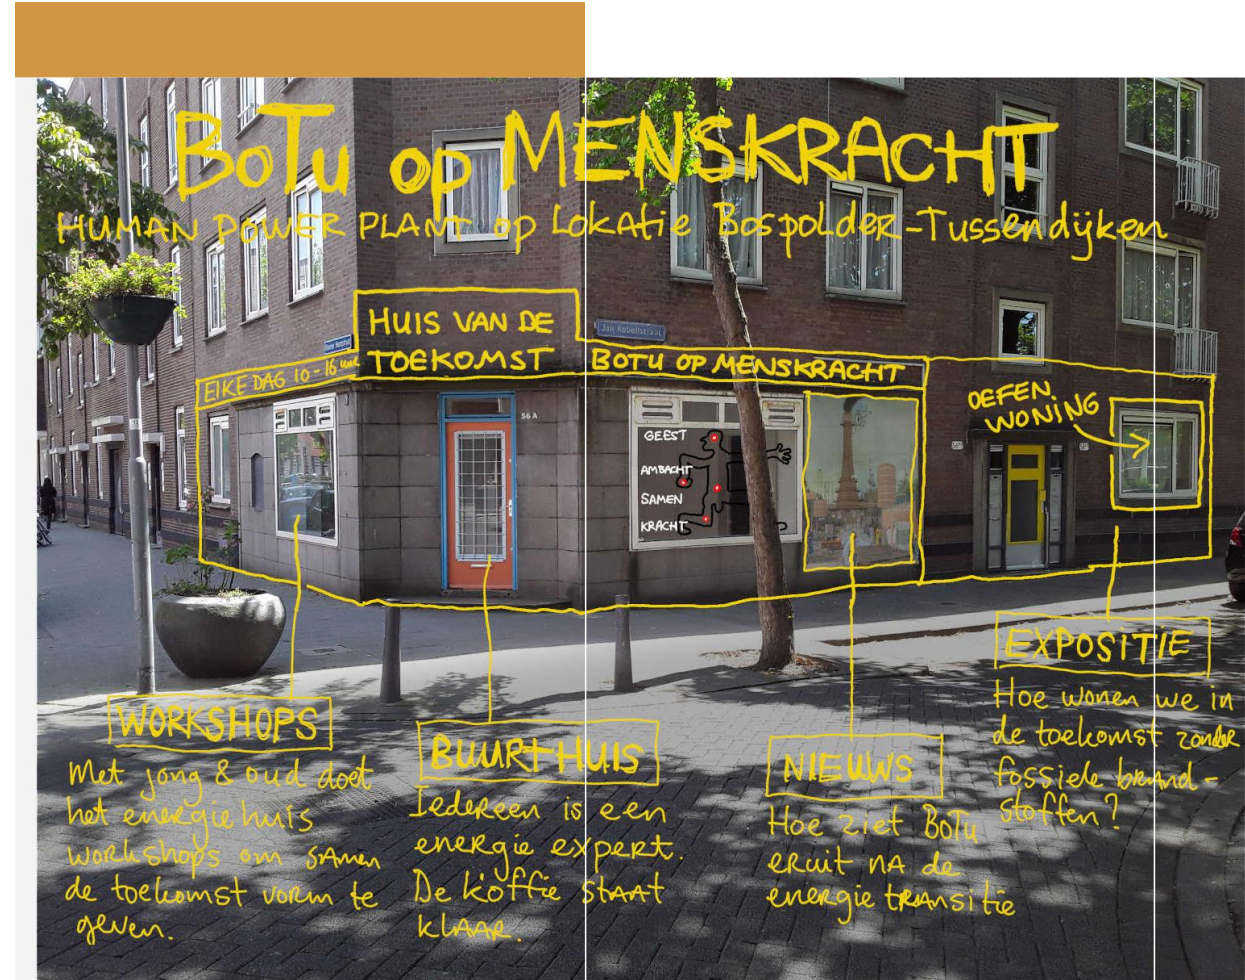 BoTu op MENSKRACHT
HUMAN POWER PLANT op Lokatie Bospolder-Tussendijken
HUIS VAN DE
TOEKOMST
Jan Kobellstraat
ELKE DAG 10 - 16 uur
BOTU OP MENSKRACHT
56 A
GEEST
AMBACHT
SAMEN
KRACHT
OEFEN
WONING
WORKSHOPS
Met jong & oud doet
het energiehuis
workshops om samen
de toekomst vorm te
geven.
BUURTHUIS
Iedereen is een
energie expert.
De koffie staat
klaar.
NIEUWS
Hoe ziet BoTu
eruit na de
energie transitie
EXPOSITIE
Hoe wonen we in
de toekomst zonder
fossiele brand-
stoffen?